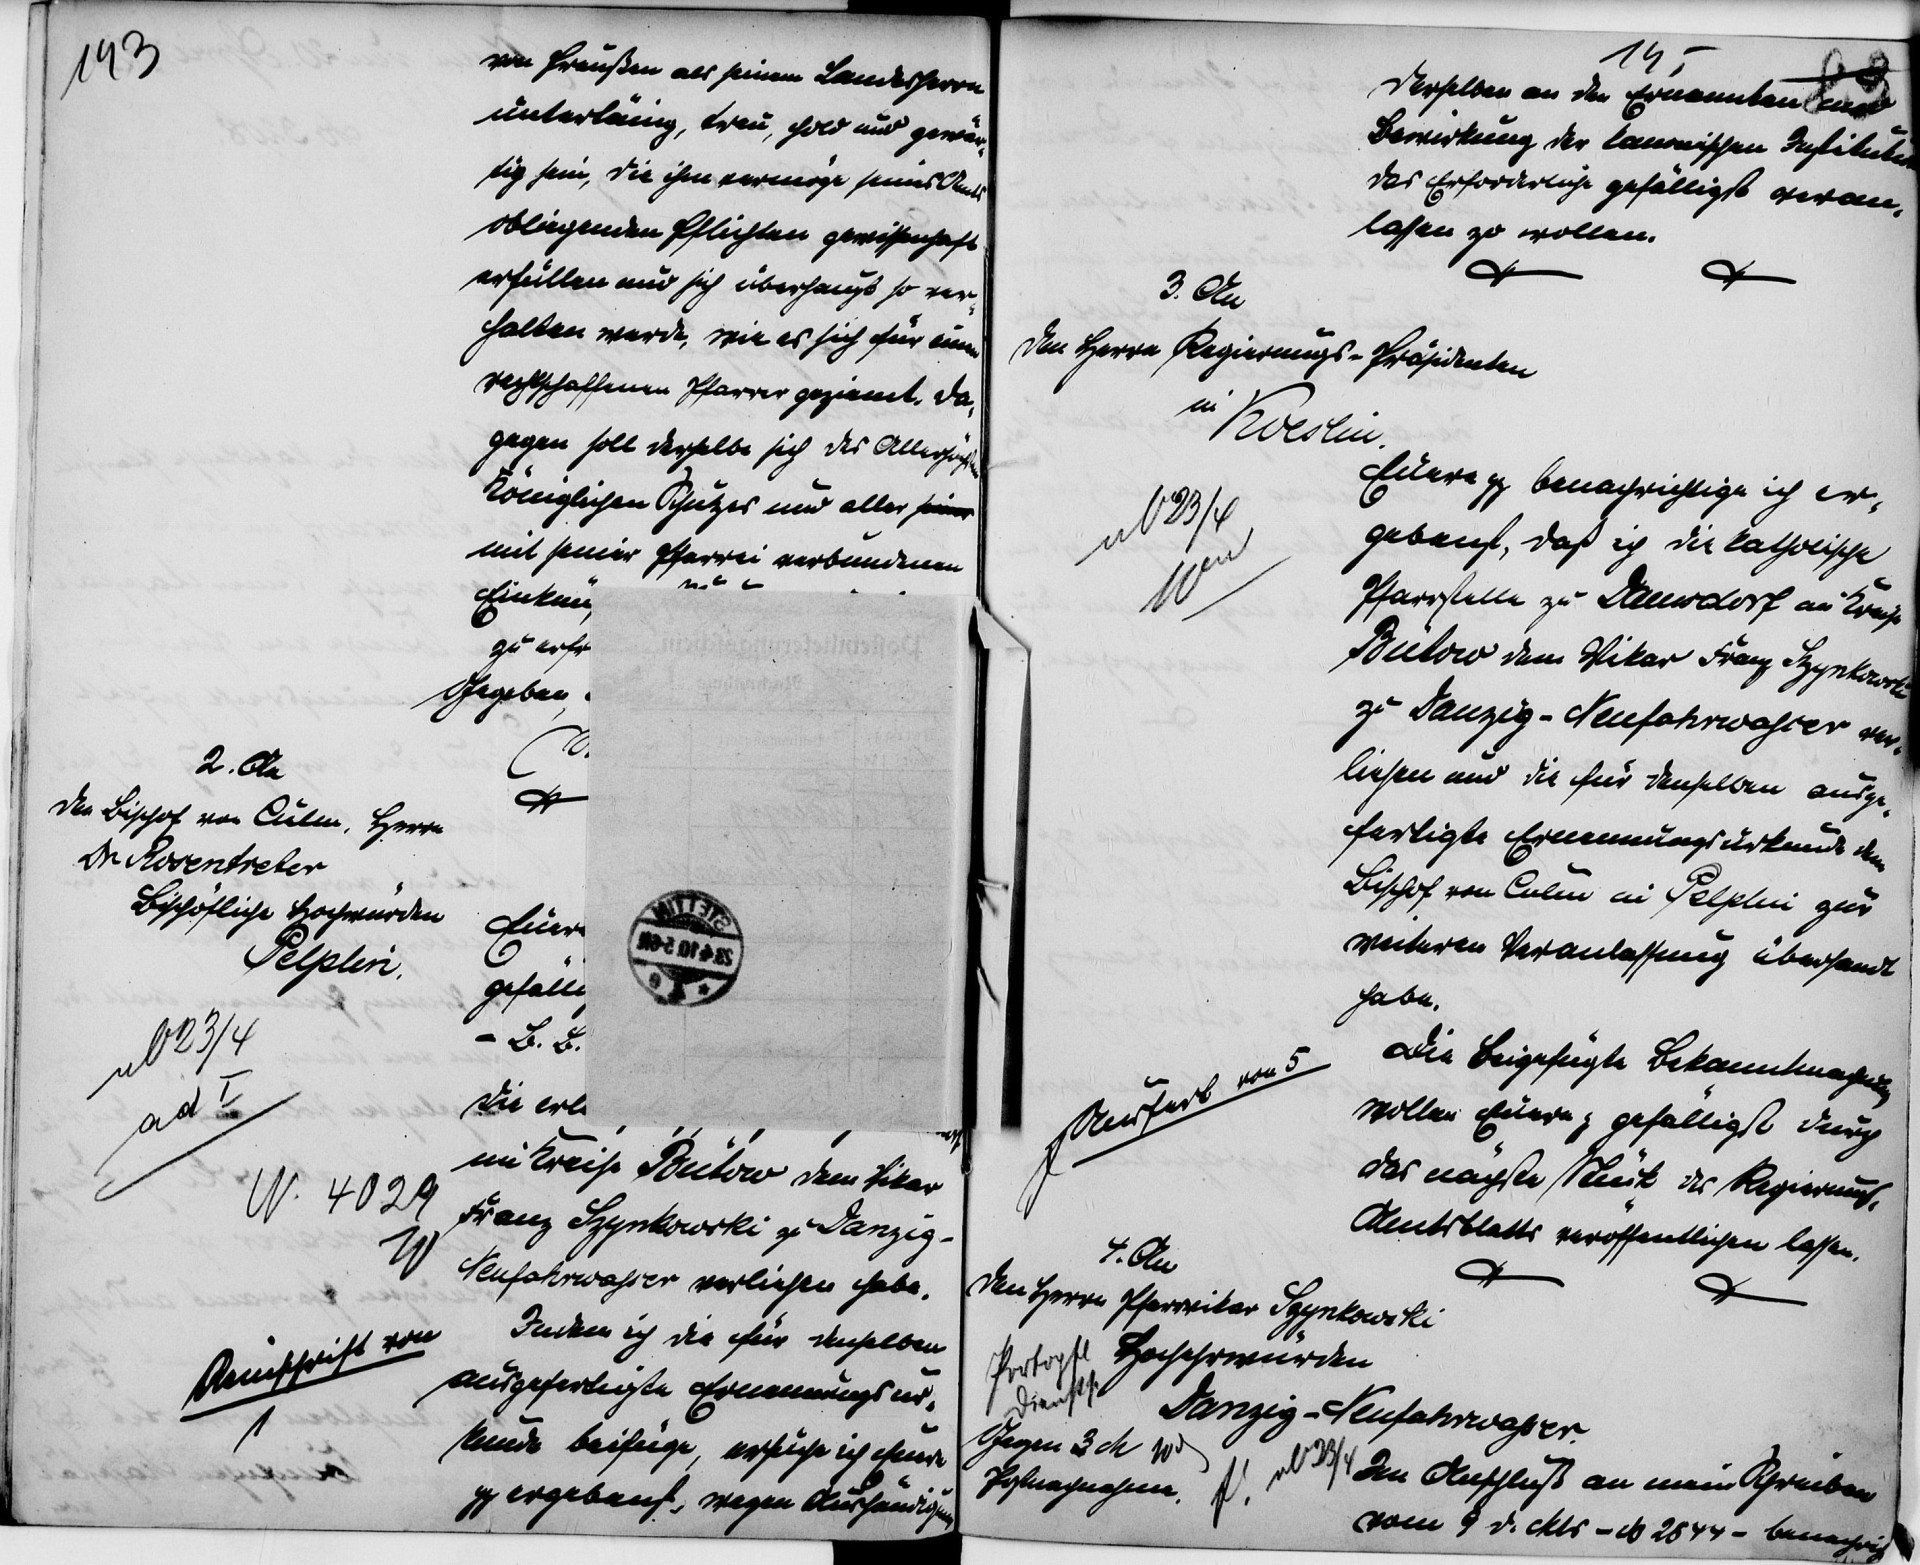 193
von Preußen als seinem Landesherrn
unterthänig, treu, hold und gewär-
tig sein, die ihm vermöge seines Amts
obliegenden Pflichten gewissenhaft
erfüllen und sich überhaupt so ver-
halten werde, wie es sich für einen
rechtschaffenen Pfarrer geziemt. Da-
gegen soll derselbe sich des Allerhöchsten
Königlichen Schutzes und aller seiner
mit seiner Pfarrei verbundenen
Einkün
zu erfr
Gegeben,
2. An
den Bischof von Culm, Herrn
Dr. Rosentreter
Bischöfliche Hochwürden
Pelplin.
ab 23/4
ad I
N. 4029
Reinschrift von
1
Euere
gefälli
- B. B.
die erl
im Kreise Bütow dem Vikar
Franz Szynkowski zu Danzig-
Neufahrwasser verliehen habe.
Indem ich die für denselben
ausgefertigte Ernennungsur-
kunde beifüge, ersuche ich Euere
pp ergebenst, wegen Aushändigung
Posteinlieferungsschein
STETTIN
23.4.10.5-6N
derselben an den Ernannten und
Bewirkung der kanonischen Institution
das Erforderliche gefälligst veran-
lassen zu wollen.
3. An
den Herrn Regierungs-Präsidenten
in
Koeslin.
ab 23/4
Euere pp benachrichtige ich er-
gebenst, daß ich die katholische
Pfarrstelle zu Damsdorf im Kreise
Bütow dem Vikar Franz Szynkowski
zu Danzig-Neufahrwasser ver-
liehen und die für denselben ausge-
fertigte Ernennungsurkunde dem
Bischof von Culm in Pelplin zur
weiteren Veranlassung übersandt
habe.
Die beigefügte Bekanntmachung
wollen Euere pp gefälligst durch
das nächste Stück des Regierungs-
Amtsblatts veröffentlichen lassen.
von 5
4. An
den Herrn Pfarrvikar Szynkowski
Hochehrwürden
Danzig-Neufahrwasser.
Portopfl
Diensts.
Gegen 3 M
Postnachnahme.
ab 23/4
Im Anschluß an mein Schreiben
vom 9 d. Mts - 2544 - benachrich